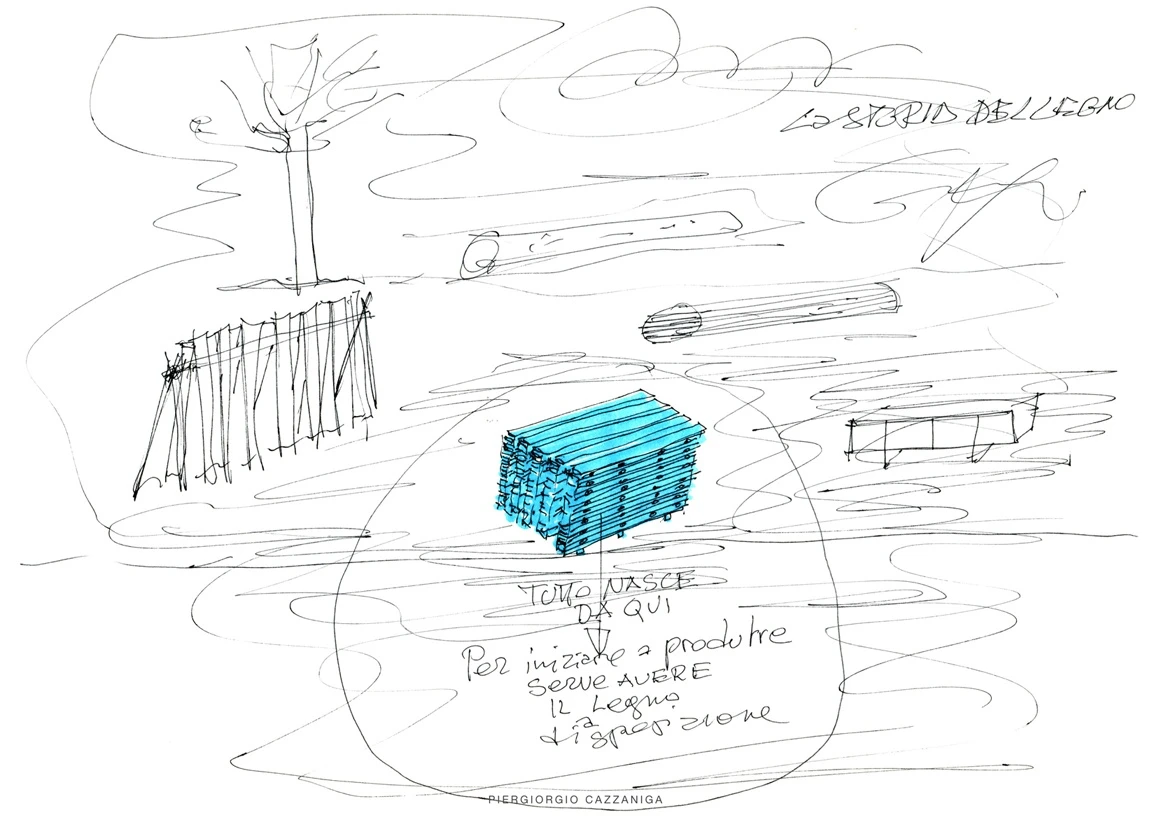 La STORIA DEL LEGNO
TUTTO NASCE
DA QUI
Per iniziare a produrre
serve AVERE
IL Legno
a
disposizione
PIERGIORGIO CAZZANIGA